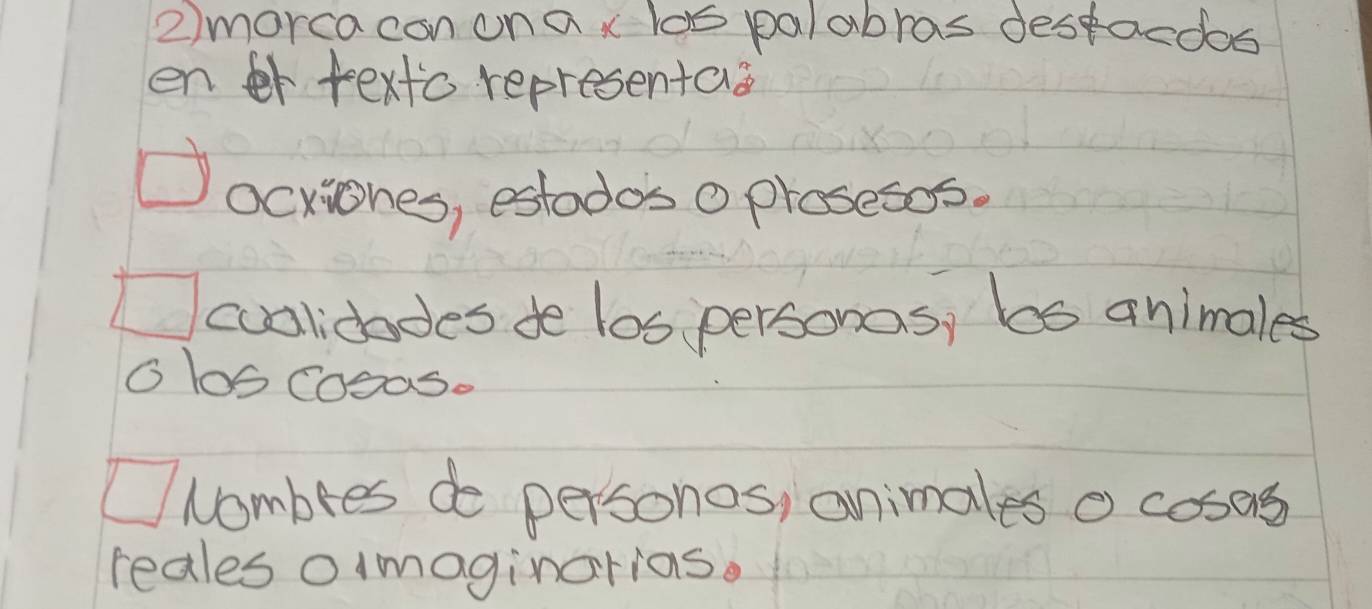 2) marca con una x las palabras destacdas
en el texto representa:
acxiones, estados o prosesos.
cualidades de las personas, los animales
o las cosas.
Nombres de personas, animales o cosas
reales o imaginarias.